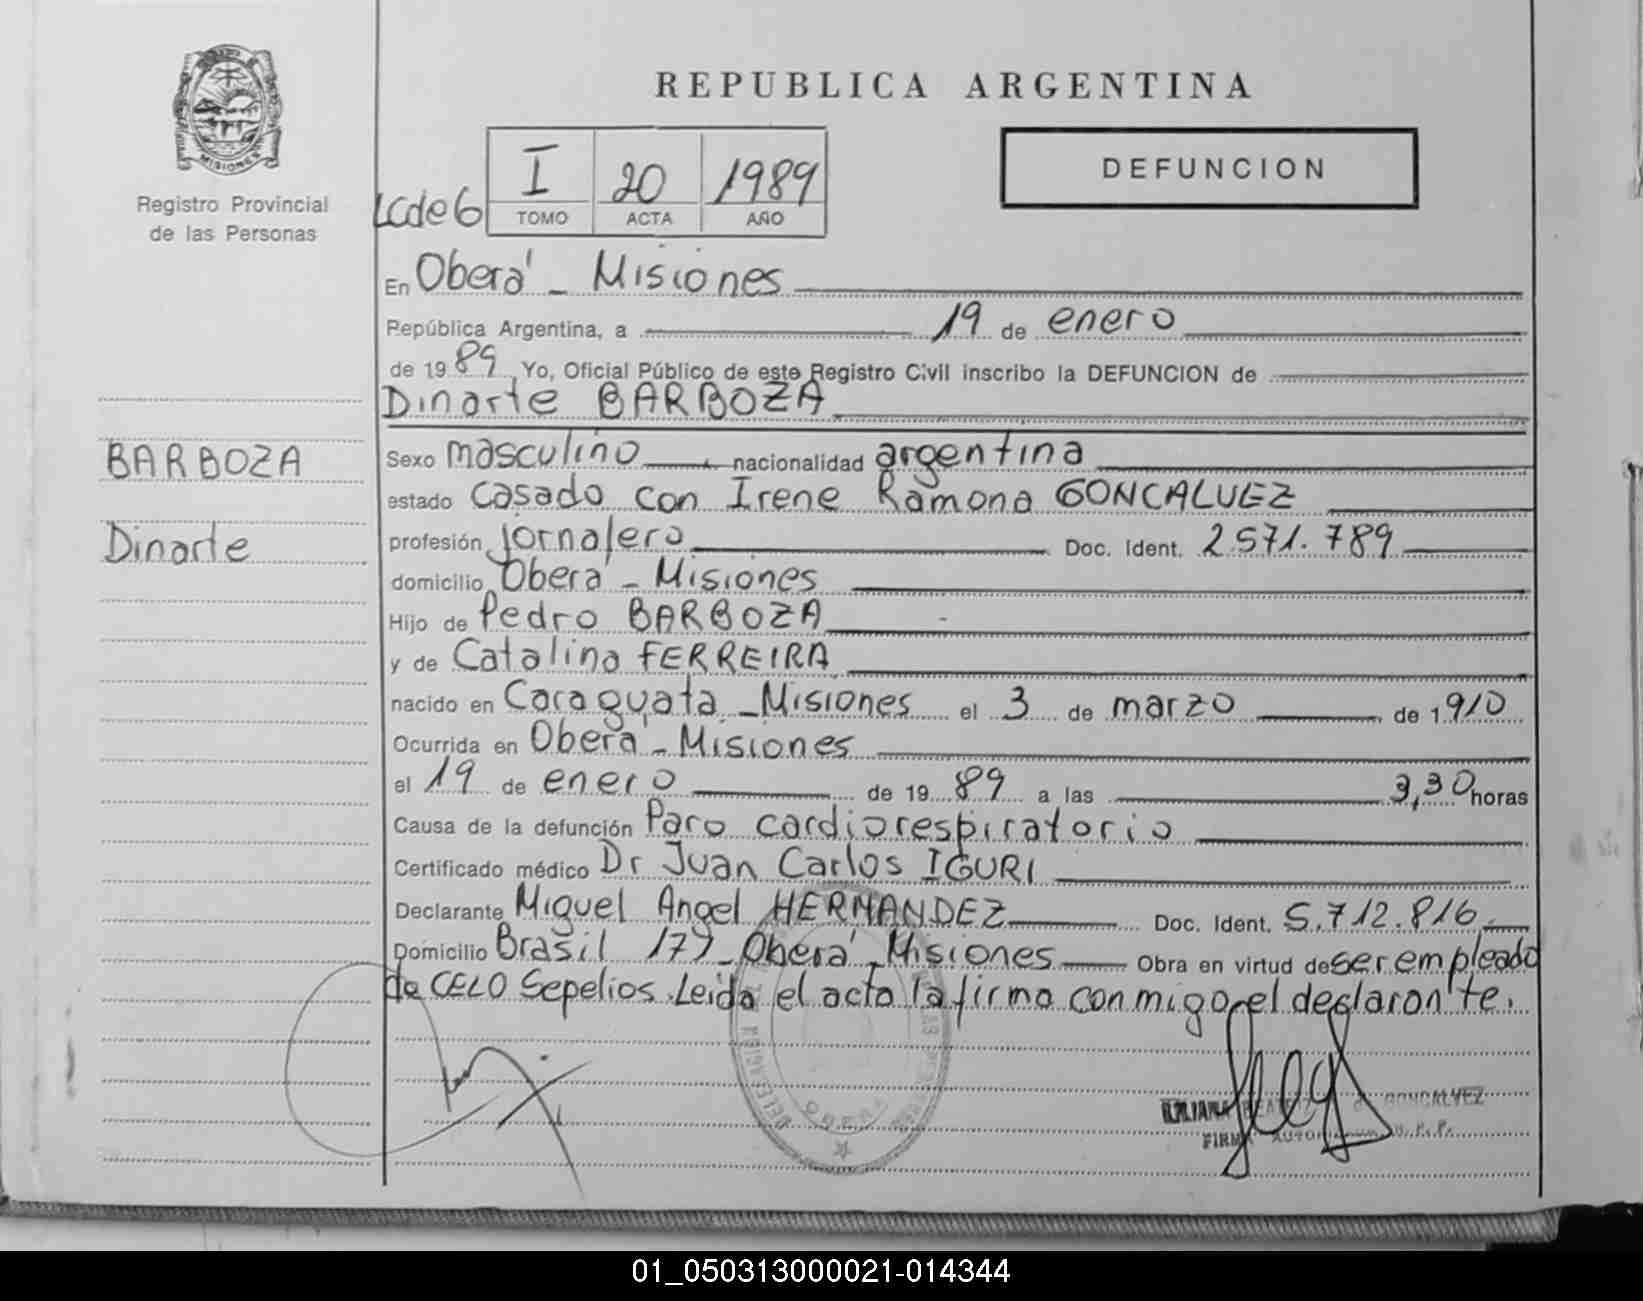 MISIONES
Registro Provincial
de las Personas
BARBOZA
Dinarte
REPUBLICA ARGENTINA
DEFUNCION
Lcde6
I 20 1989
TOMO ACTA AÑO
En Oberá - Misiones
República Argentina, a 19 de enero
de 1989 Yo, Oficial Público de este Registro Civil inscribo la DEFUNCION de
Dinarte BARBOZA
Sexo masculino nacionalidad argentina
estado casado con Irene Ramona GONCALVEZ
profesión jornalero Doc. Ident. 2.571.789
domicilio Oberá - Misiones
Hijo de Pedro BARBOZA
y de Catalina FERREIRA
nacido en Caraguata - Misiones el 3 de marzo de 1.910
Ocurrida en Oberá - Misiones
el 19 de enero de 1989 a las 3,30 horas
Causa de la defunción Paro cardiorespiratorio
Certificado médico Dr Juan Carlos IGURI
Declarante Miguel Angel HERNANDEZ Doc. Ident. 5.712.816
Domicilio Brasil 177 - Oberá - Misiones Obra en virtud de ser empleado
de CELO Sepelios. Leida el acta la firma conmigo el declarante.
OBERA
LILIANA BEATRIZ GONCALVEZ
FIRMA
01_050313000021-014344